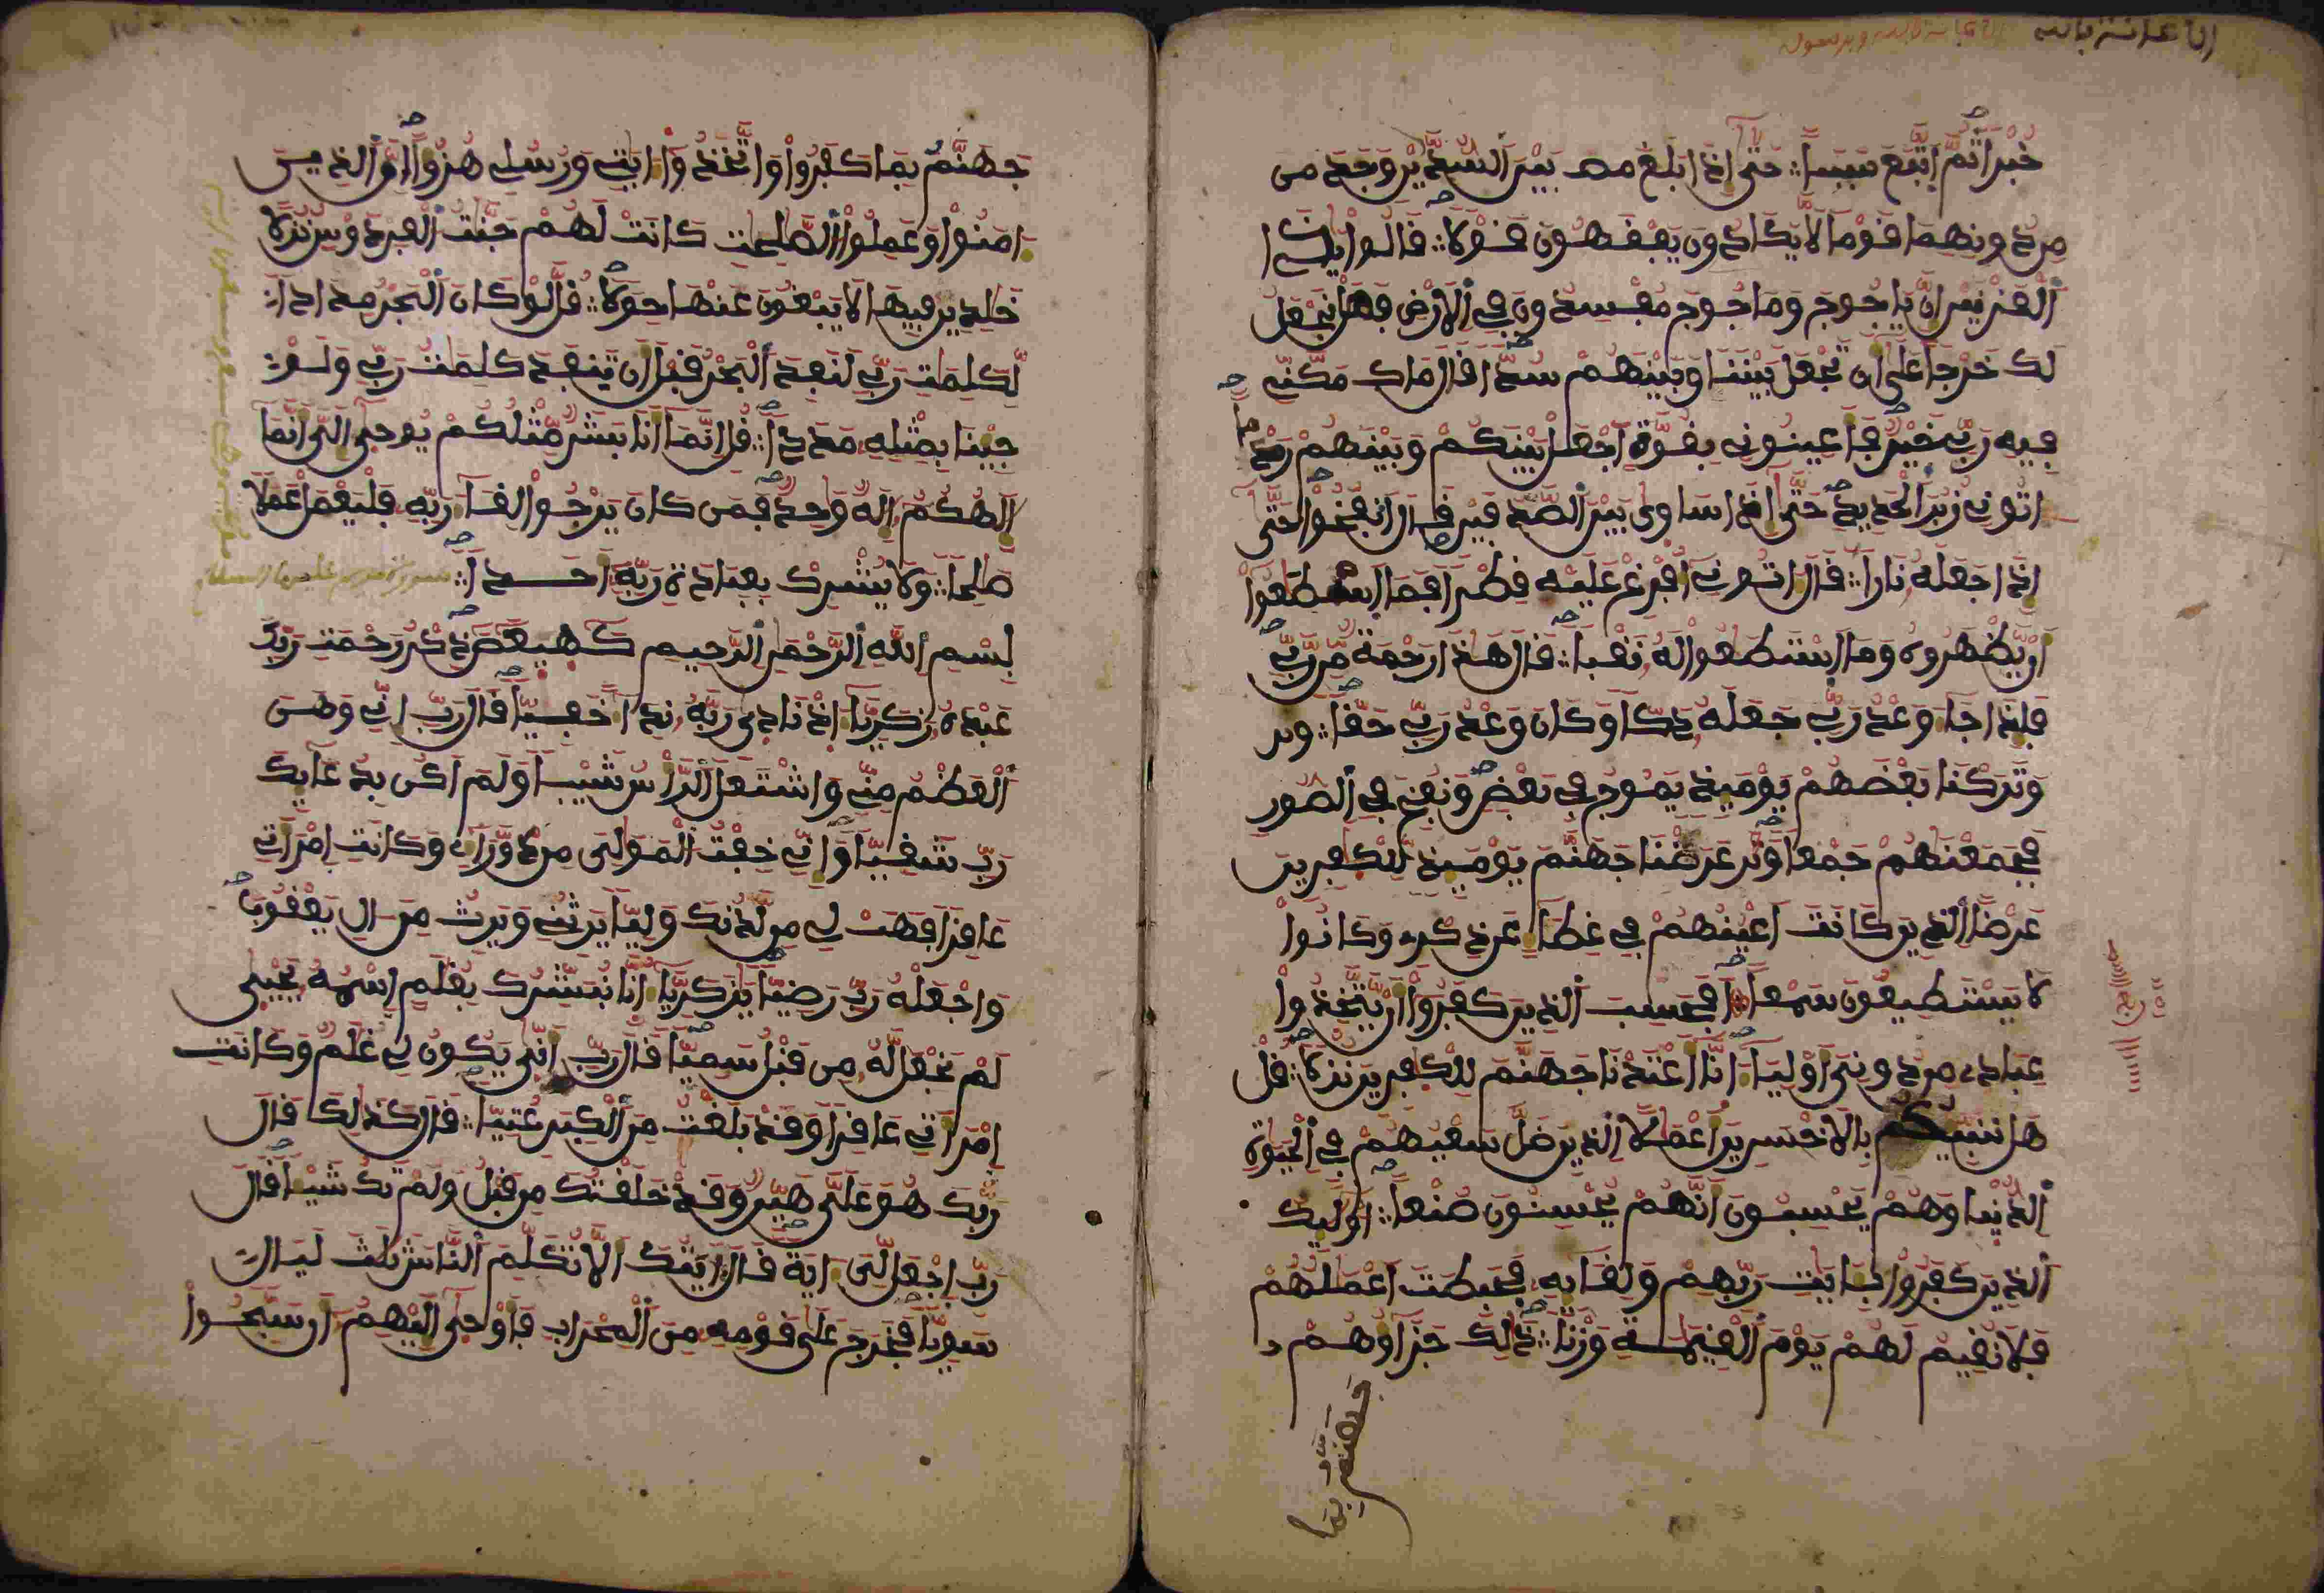 خُبْراً ثُمَّ اتَّبَعَ سَبَباً حَتَّى إذا بلغ بَيْنَ ٱلسُّدَّيْنِ وَجَدَ من
مِن دونهِمَا قَوْماً لاَّ يَكَادُونَ يَفْقَهُونَ قَوْلاً قَالُوا يٰذَا
ٱلْقَرْنَيْنِ إنَّ يَاجُوجَ وَمَاجُوجَ مُفْسِدُونَ فِي ٱلاَرْضِ فَهَلْ نَجْعَلُ
لَكَ خَرْجاً عَلَى أن تَجْعَلَ بَيْنَنَا وَبَيْنَهُمْ سُدّاً قَالَ مَا مَكَّنِّي
فِيهِ رَبِّي خَيْرٌ فَأَعِينُونِي بِقُوَّةٍ اَجْعَلْ بَيْنَكُمْ وَبَيْنَهُمْ رَدْماً
اتُونِي زُبَرَ ٱلْحَدِيدِ حَتَّى إذَا سَاوى بَيْنَ ٱلصَّدَفَيْنِ قَالَ انفُخُوا حَتَّى
إذَا جَعَلَهُ نَاراً قَالَ اتُونِي أُفْرِغْ عَلَيْهِ قِطْراً فَمَا اسْطَٰعُوا
أَنْ يَّظْهَرُوهُ وَمَا اسْتَطَٰعُوا لَهُ نَقْباً قَالَ هَٰذَا رَحْمَةٌ مِّن رَّبِّي
فَإذَا جَاءَ وَعْدُ رَبِّي جَعَلَهُ دَكّاً وَكَانَ وَعْدُ رَبِّي حَقّاً
وَتَرَكْنَا بَعْضَهُمْ يَوْمَئِذٍ يَمُوجُ فِي بَعْضٍ وَنُفِخَ فِي ٱلصُّورِ
فَجَمَعْنَٰهُمْ جَمْعاً وَعَرَضْنَا جَهَنَّمَ يَوْمَئِذٍ لِّلْكَٰفِرِينَ
عَرْضاً ٱلَّذِينَ كَانَتْ أَعْيُنُهُمْ فِي غِطَاءٍ عَن ذِكْرِي وَكَانُوا
لاَ يَسْتَطِيعُونَ سَمْعاً أَفَحَسِبَ ٱلَّذِينَ كَفَرُوا أَنْ يَّتَّخِذُوا
عِبَادِي مِن دُونِيَ أَوْلِيَاءَ إنَّا أَعْتَدْنَا جَهَنَّمَ لِلْكَٰفِرِينَ نُزُلاً قُلْ
هَلْ نُنَبِّئُكُم بِالاَخْسَرِينَ أَعْمَٰلاً ٱلَّذِينَ ضَلَّ سَعْيُهُمْ فِي ٱلْحَيَوٰةِ
ٱلدُّنْيا وَهُمْ يَحْسِبُونَ أَنَّهُمْ يُحْسِنُونَ صُنْعاً أُوْلَٰئِكَ
ٱلَّذِينَ كَفَرُوا بِـَٔايَٰتِ رَبِّهِمْ وَلِقَائِهِ فَحَبِطَتْ أَعْمَٰلُهُمْ
فَلاَ نُقِيمُ لَهُمْ يَوْمَ ٱلْقِيَٰمَةِ وَزْناً ذَٰلِكَ جَزَاؤُهُمْ
جَهَنَّمُ بِمَا
جَهَنَّمُ بِمَا كَفَرُوا وَاتَّخَذُوا ءَايَٰتِي وَرُسُلِي هُزُؤاً إنَّ ٱلَّذِينَ
ءَامَنُوا وَعَمِلُوا ٱلصَّٰلِحَٰتِ كَانَتْ لَهُمْ جَنَّٰتُ ٱلْفِرْدَوْسِ نُزُلاً
خَٰلِدِينَ فِيهَا لاَ يَبْغُونَ عَنْهَا حِوَلاً قُل لَّوْ كَانَ ٱلْبَحْرُ مِدَاداً
لِّكَلِمَٰتِ رَبِّي لَنَفِدَ ٱلْبَحْرُ قَبْلَ أَن تَنفَدَ كَلِمَٰتُ رَبِّي وَلَوْ
جِيْنَا بِمِثْلِهِ مَدَداً قُلْ إنَّمَا أَنَا بَشَرٌ مِّثْلُكُمْ يُوحَى إلَيَّ أَنَّمَا
إلَٰهُكُمُ إلَٰهٌ وَٰحِدٌ فَمَن كَانَ يَرْجُوا لِقَاءَ رَبِّهِ فَلْيَعْمَلْ عَمَلاً
صَٰلِحاً وَلاَ يُشْرِكْ بِعِبَادَةِ رَبِّهِ أَحَداً
بِسْمِ ٱللَّهِ ٱلرَّحْمَٰنِ ٱلرَّحِيمِ كَهيعَصَ ذِكْرُ رَحْمَتِ رَبِّكَ
عَبْدَهُ زَكَرِيَّاءَ إذْ نَادَى رَبَّهُ نِدَاءً خَفِيّاً قَالَ رَبِّ إنِّي وَهَنَ
ٱلْعَظْمُ مِنِّي وَاشْتَعَلَ ٱلرَّأْسُ شَيْباً وَلَمَ اَكُن بِدُعَائِكَ
رَبِّ شَقِيّاً وَإنِّي خِفْتُ ٱلْمَوَٰلِيَ مِن وَّرَاءِي وَكَانَتِ اِمْرَأَتِي
عَاقِراً فَهَبْ لِي مِن لَّدُنكَ وَلِيّاً يَرِثُنِي وَيَرِثُ مِنَ ءَالِ يَعْقُوبَ
وَاجْعَلْهُ رَبِّ رَضِيّاً يَٰزَكَرِيَّاءُ إنَّا نُبَشِّرُكَ بِغُلَٰمٍ اِسْمُهُ يَحْيَى
لَمْ نَجْعَل لَّهُ مِن قَبْلُ سَمِيّاً قَالَ رَبِّ أَنَّى يَكُونُ لِي غُلَٰمٌ وَكَانَتِ
اِمْرَأَتِي عَاقِراً وَقَدْ بَلَغْتُ مِنَ ٱلْكِبَرِ عُتِيّاً قَالَ كَذَٰلِكَ قَالَ
رَبُّكَ هُوَ عَلَيَّ هَيِّنٌ وَقَدْ خَلَقْتُكَ مِن قَبْلُ وَلَمْ تَكُ شَيْئاً قَالَ
رَبِّ اِجْعَل لِّيَ ءَايَةً قَالَ ءَايَتُكَ أَلاَّ تُكَلِّمَ ٱلنَّاسَ ثَلَٰثَ لَيَالٍ
سَوِيّاً فَخَرَجَ عَلَى قَوْمِهِ مِنَ ٱلْمِحْرَابِ فَأَوْحَى إلَيْهِمُ أَن سَبِّحُوا